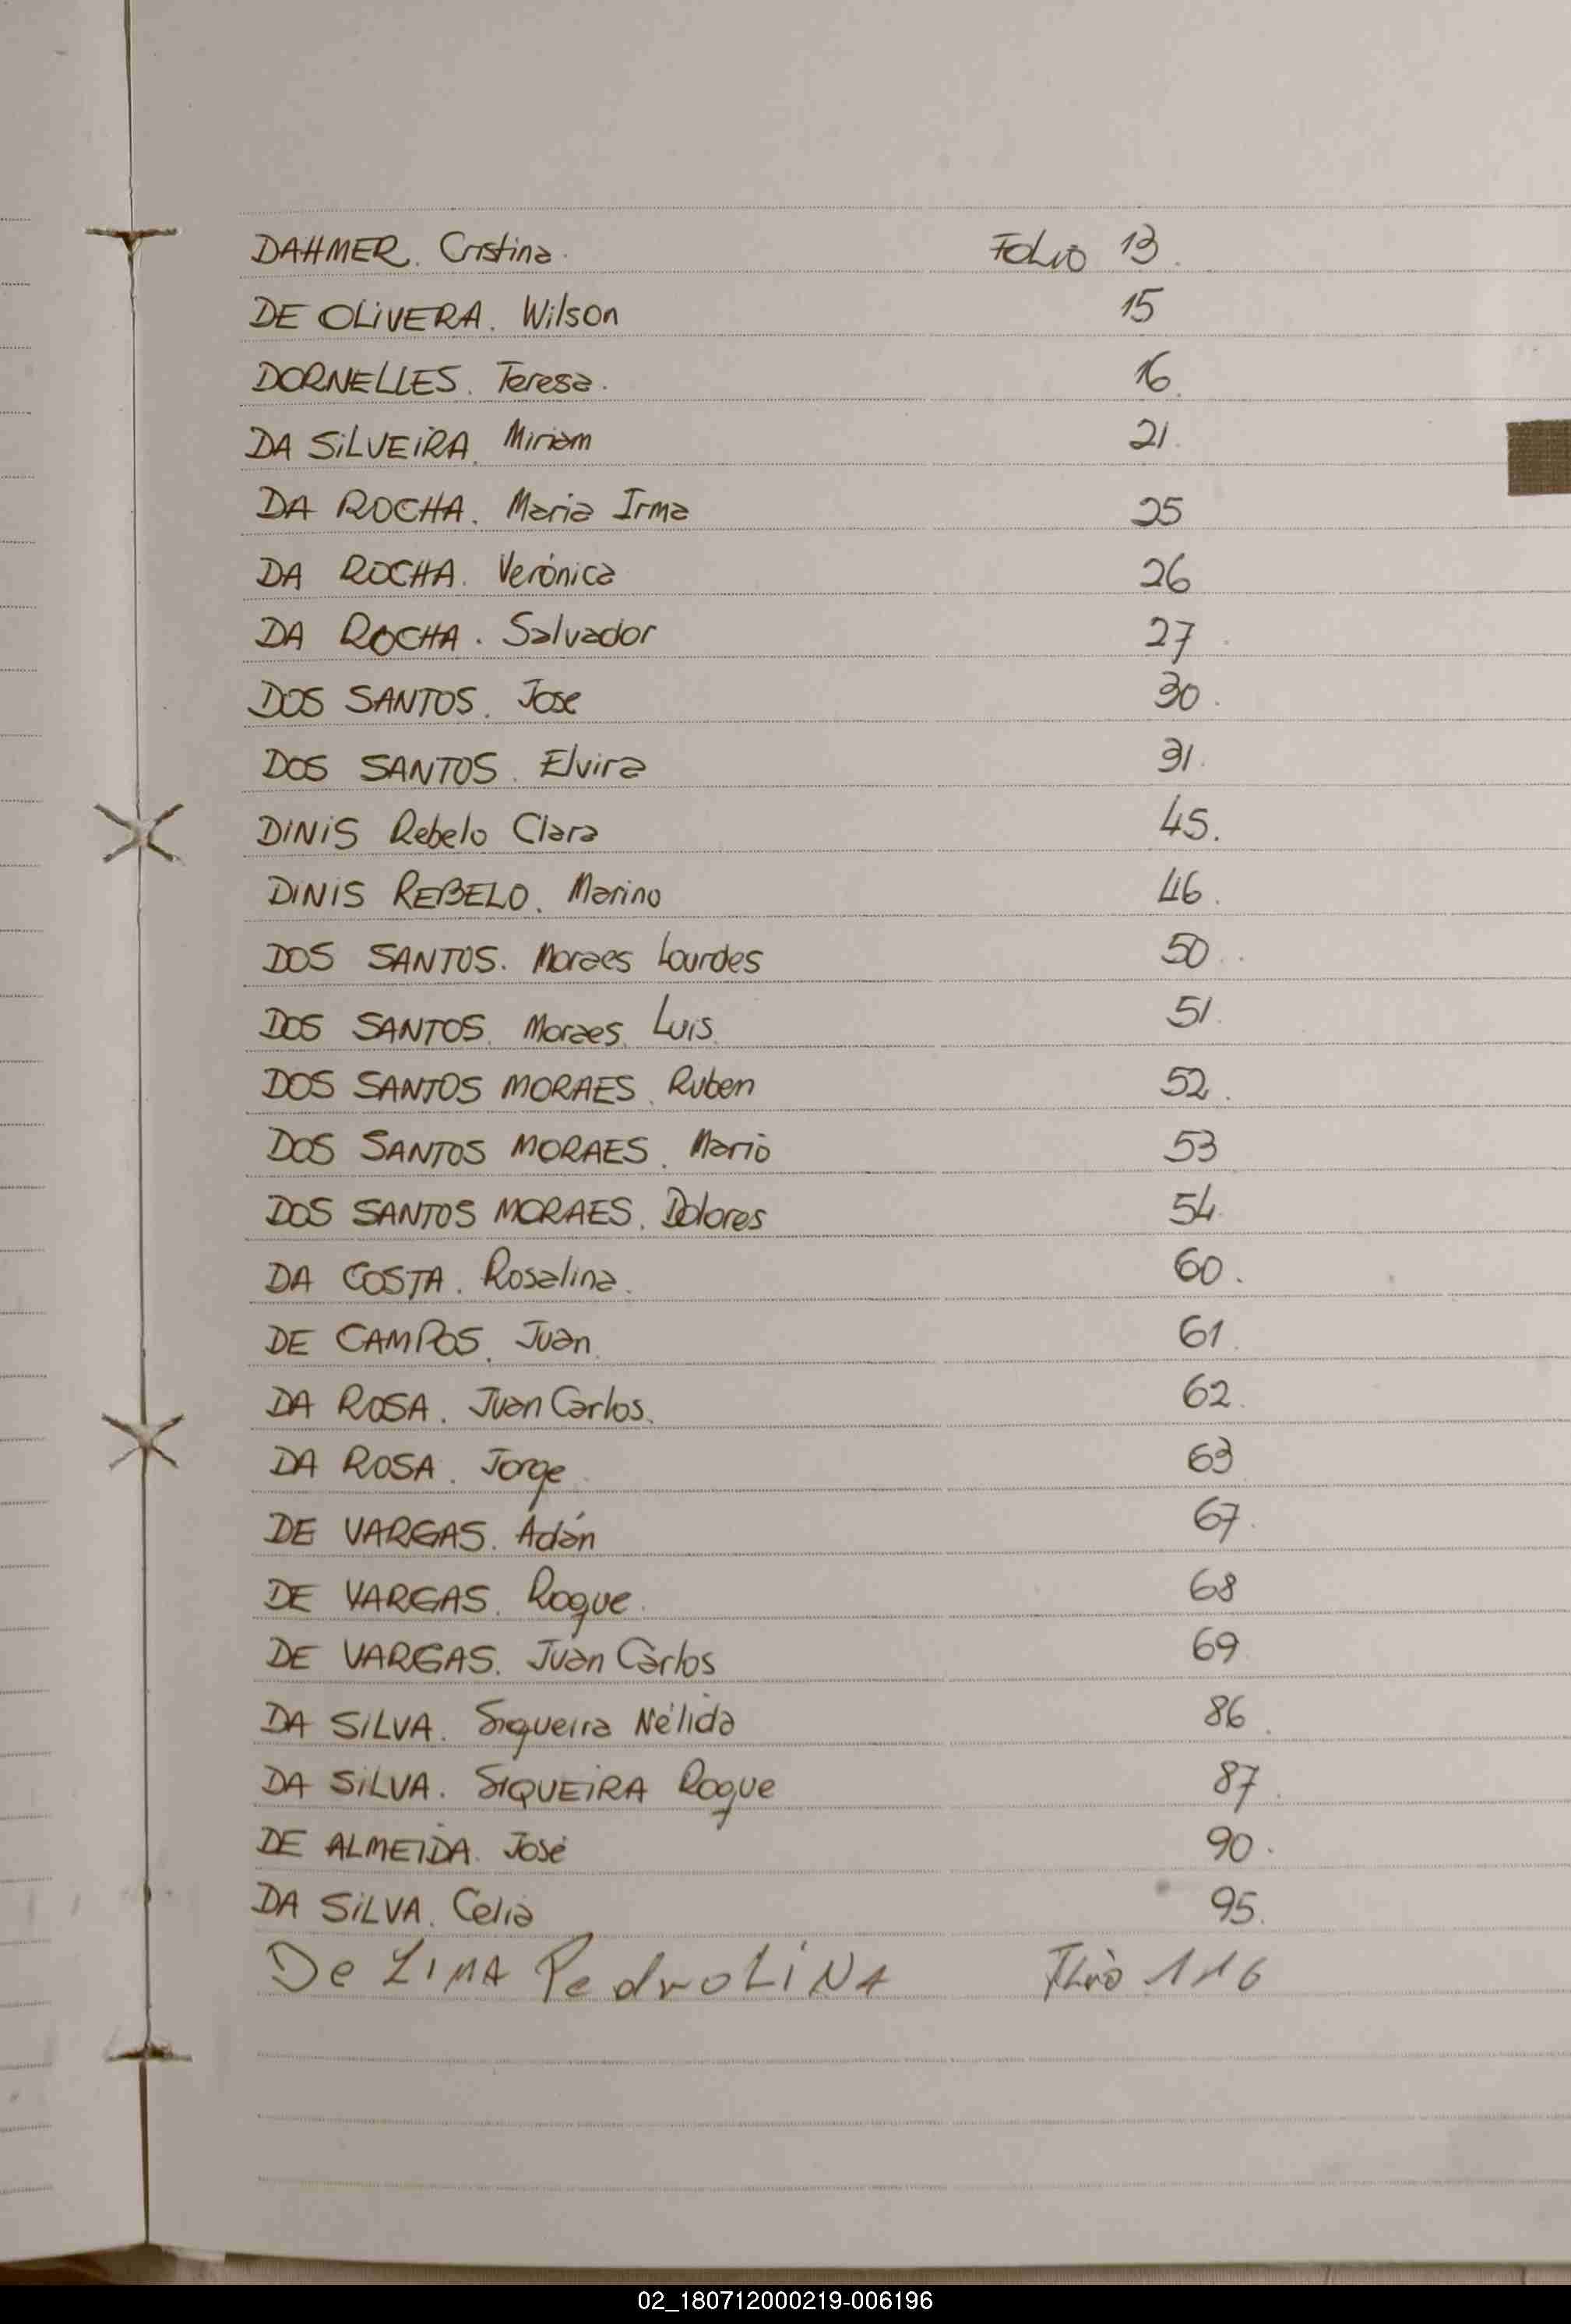 DAHMER. Cristina. FOLIO 13.
DE OLIVERA. Wilson 15
DORNELLES. Teresa. 16.
DA SILVEIRA. Miriam 21.
DA ROCHA. Maria Irma 25
DA ROCHA. Verónica 26
DA ROCHA. Salvador 27
DOS SANTOS. Jose 30.
DOS SANTOS. Elvira 31.
DINIS Rebelo Clara 45.
DINIS REBELO. Marino 46.
DOS SANTOS. Moraes Lourdes 50.
DOS SANTOS. Moraes. Luis. 51.
DOS SANTOS MORAES. Ruben 52.
DOS SANTOS MORAES. Mario 53
DOS SANTOS MORAES. Dolores 54.
DA COSTA. Rosalina. 60.
DE CAMPOS. Juan. 61.
DA ROSA. Juan Carlos. 62.
DA ROSA. Jorge. 63
DE VARGAS. Adán 67.
DE VARGAS. Roque. 68
DE VARGAS. Juan Carlos 69
DA SILVA. Siqueira Nélida 86.
DA SILVA. SIQUEIRA Roque 87.
DE ALMEIDA. José 90.
DA SILVA. Celia 95.
De LIMA PedroLiNA Flio 116
02_180712000219-006196